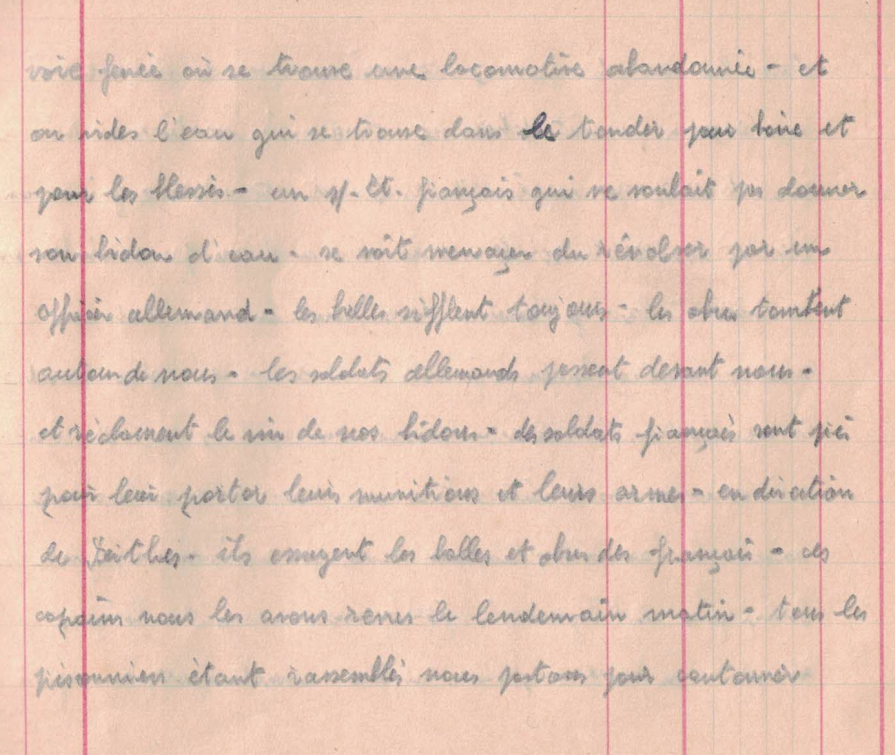 voie ferrée où se trouve une locomotive abandonnée - et
on vides l'eau qui se trouve dans le tender pour boire et
pour les blessés - un s/- Lt. français qui ne voulait pas donner
son bidon d'eau - se voit menaçer du révolver par un
officier allemand - les balles sifflent toujours - les obus tombent
autour de nous - les soldats allemands passent devant nous -
et réclament le vin de nos bidons - des soldats français sont pris
pour leur porter leurs munitions et leurs armes - en direction
de - ils essuyent les balles et obus des français - ces
copains nous les avons revus le lendemain matin - tous les
prisonniers étant rassemblés nous partons pour cantonner